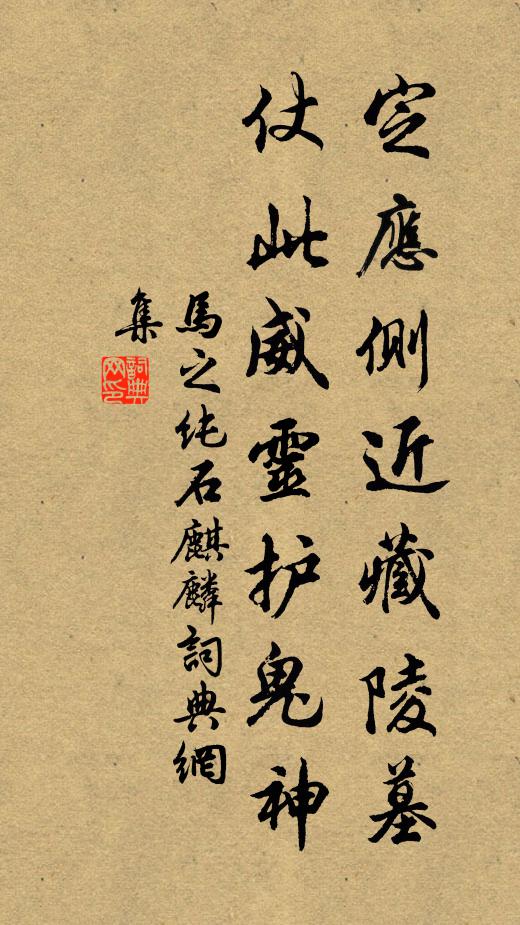 定應側近藏陵墓
仗此威靈护鬼神
馬之纯石麒麟詞典網
集
詞典
网印